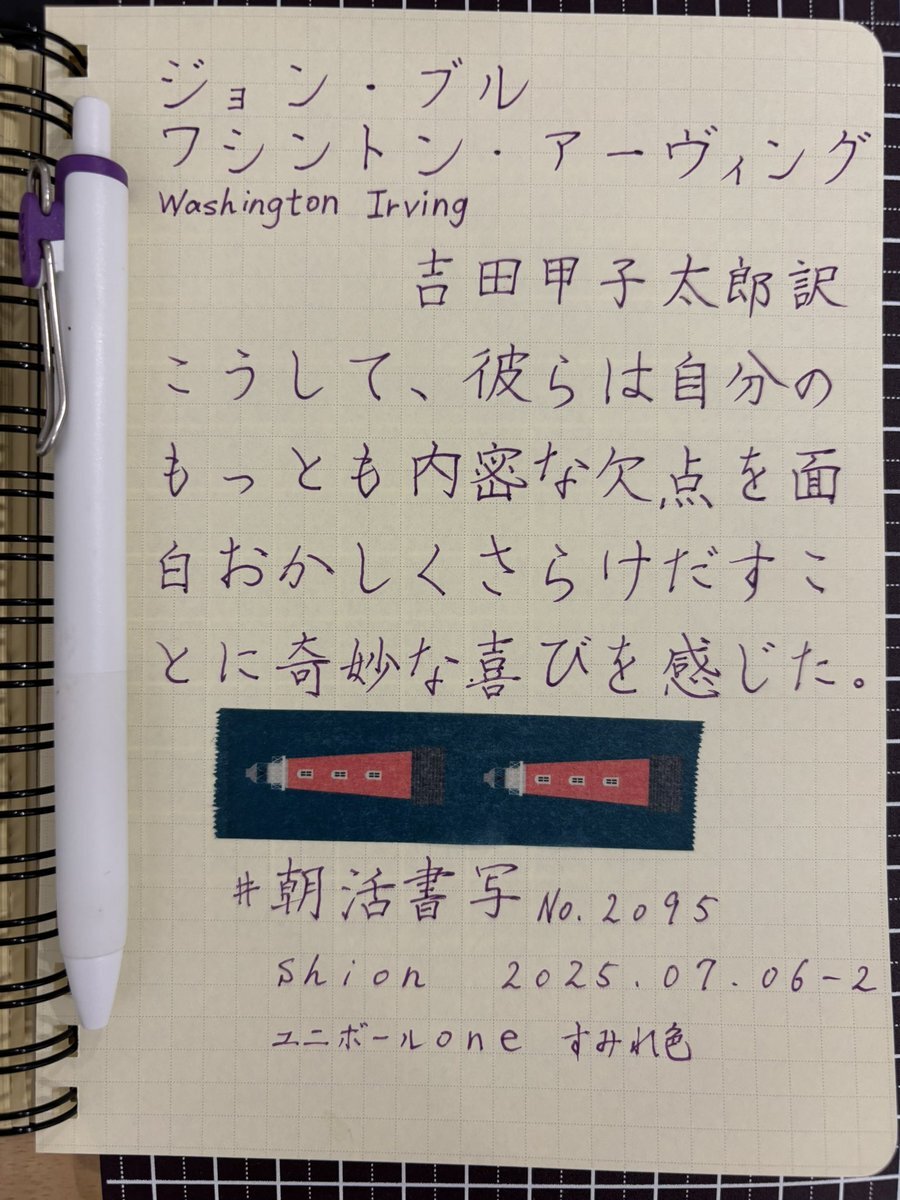 ジョン・ブル
ワシントン・アーヴィング
Washington Irving
吉田甲子太郎訳
こうして、彼らは自分の
もっとも内密な欠点を面
白おかしくさらけだすこ
とに奇妙な喜びを感じた。
#朝活書写 No.2095
Shion 2025.07.06-2
ユニボールone すみれ色